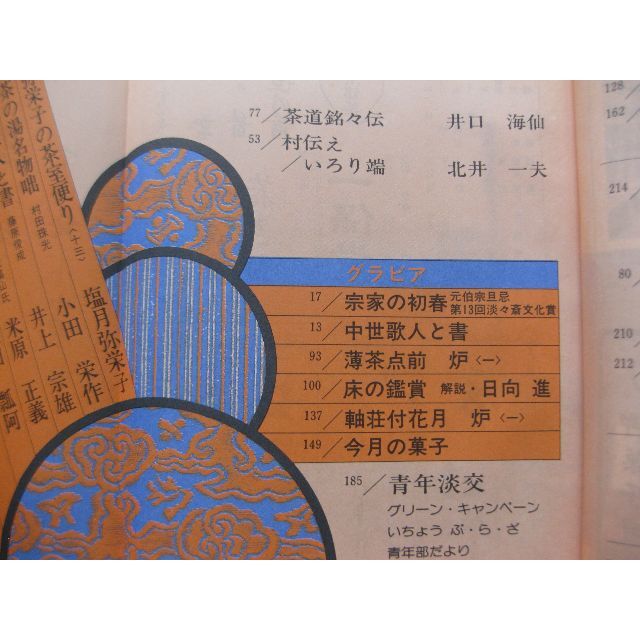 77／茶道銘々伝 井口 海仙
53／村伝え
／いろり端 北井 一夫
グラビア
17／宗家の初春 元伯宗旦忌
第13回淡々斎文化賞
13／中世歌人と書
93／薄茶点前 炉〈一〉
100／床の鑑賞 解説・日向 進
137／軸荘付花月 炉〈一〉
149／今月の菓子
185／青年淡交
グリーン・キャンペーン
いちょう ぶ・ら・ざ
青年部だより
128
162
214
80
210
212
栄子の茶室便り〈十三〉 塩月弥栄子
茶の湯名物咄 村田珠光 小田 栄作
井上 宗雄
米原 正義
瓢阿